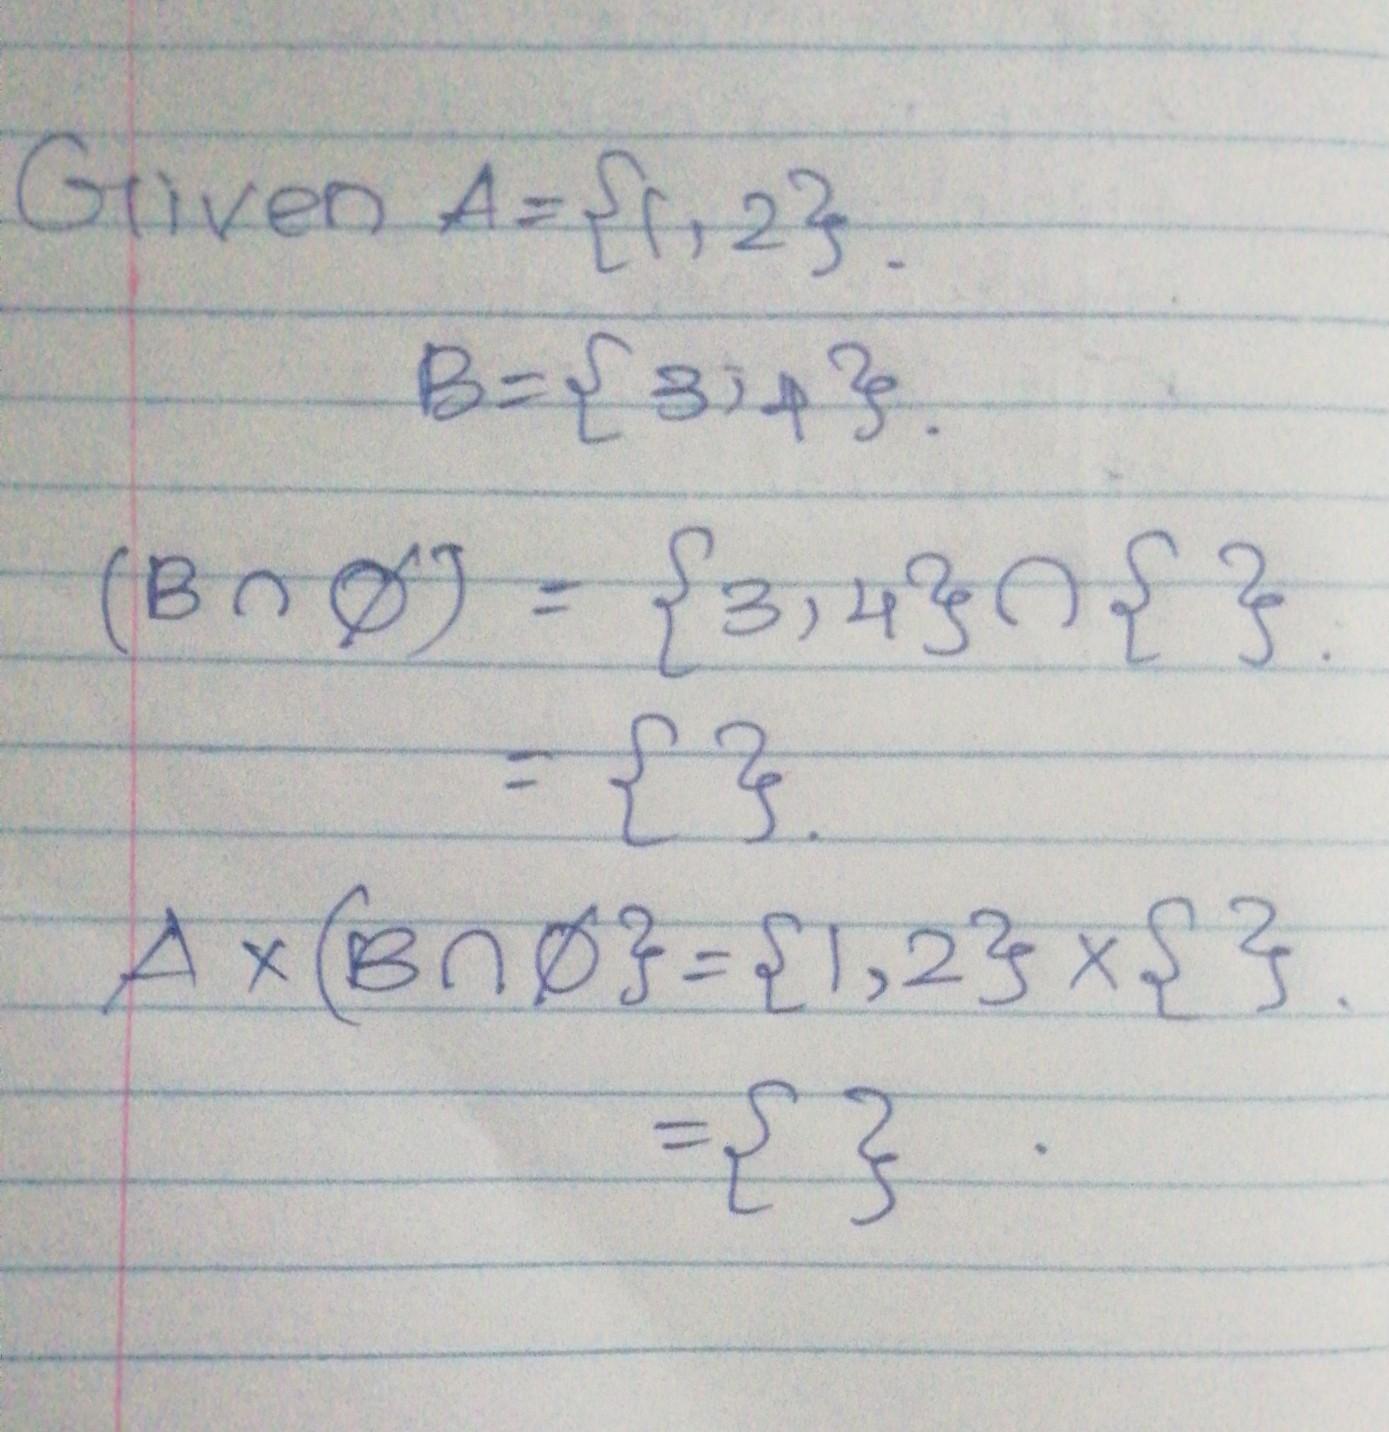 Given A={1,2}.
B={3,4}.
(B∩Ø) = {3,4}∩{ }.
= { }.
A×(B∩Ø}={1,2}×{ }.
={ } .